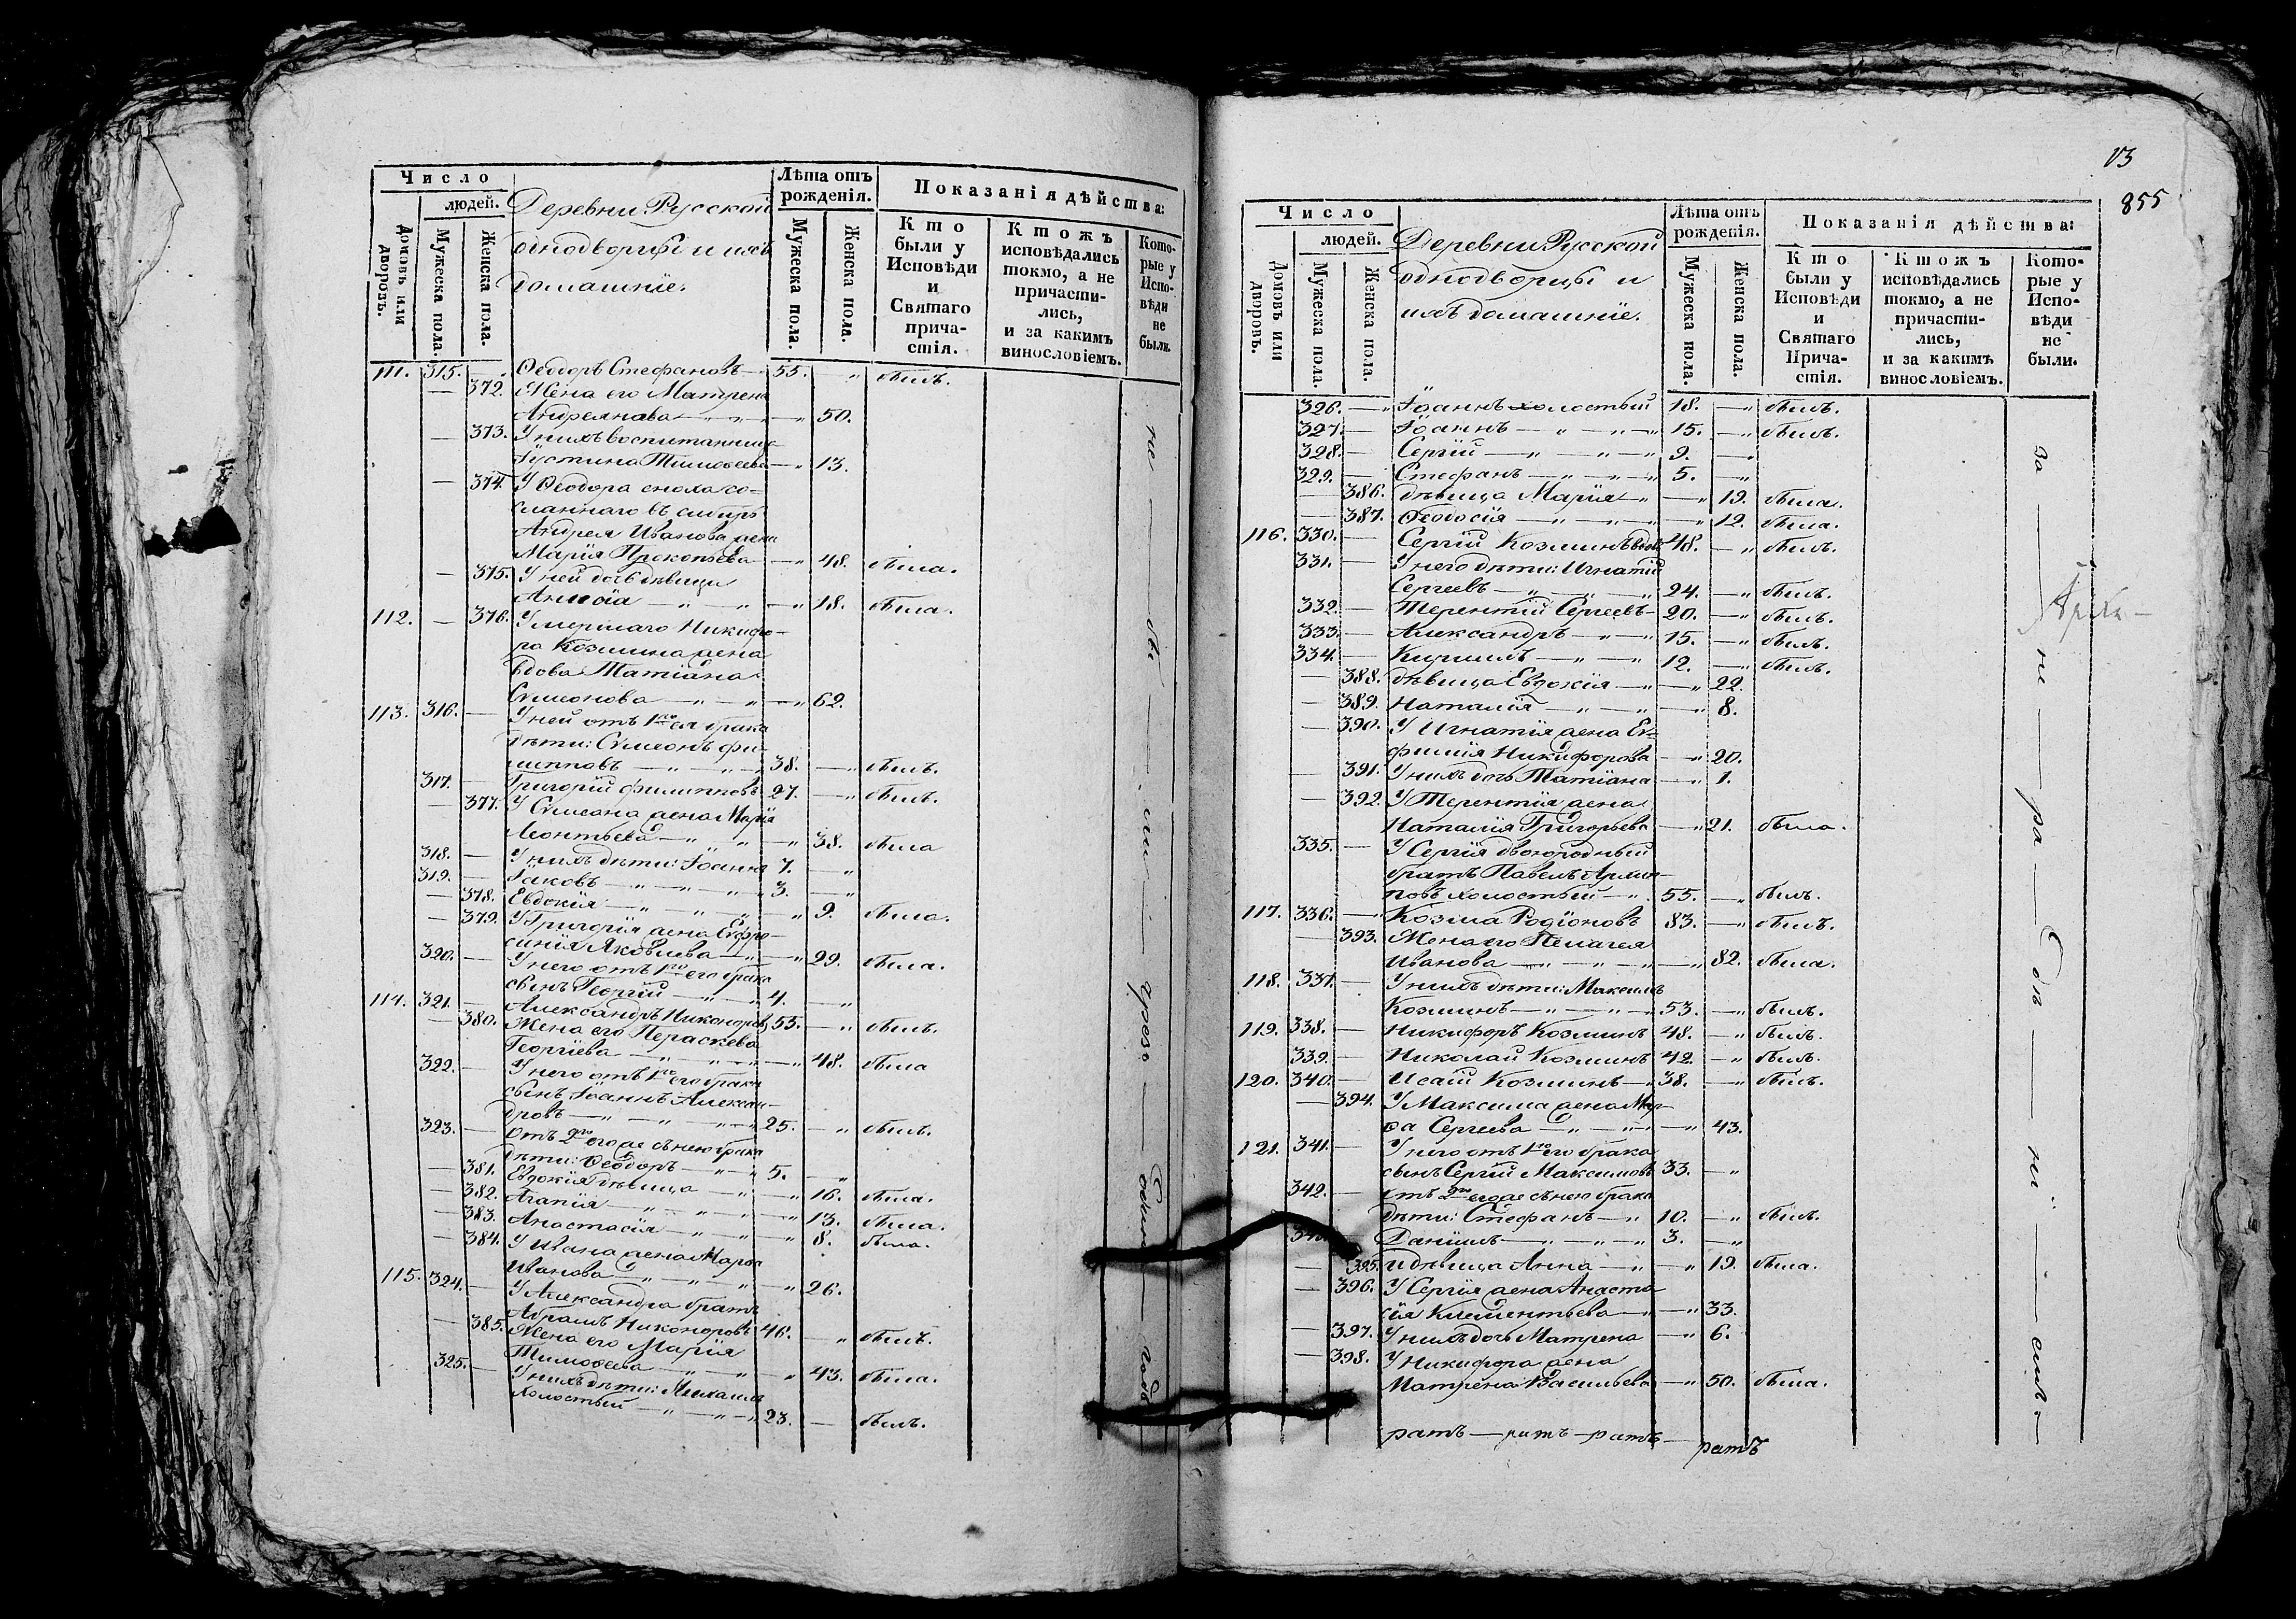 Число
людей.
Домовъ или дворовъ.
Мужеска пола.
Женска пола.
Деревни Русской
однодворцы и ихъ
домашніе.
Лѣта отъ
рожденія.
Мужеска пола.
Женска пола.
Показанія дѣйства:
Кто
были у
Исповѣди
и
Святаго
прича-
стія.
Ктожъ
исповѣдались
токмо, а не
причасти-
лись,
и за какимъ
винословіемъ.
Кото-
рые у
Испо-
вѣди
не
были.
111. 315. — Ѳеодоръ Стефановъ 55. — былъ.
— 372. Жена его Матрена
Андреянова — 50.
— 373. У нихъ воспитанница
Іустина Тимоѳеева — 13.
— 374. У Ѳеодора сноха со-
сланнаго въ сибирь
Андрея Иванова жена
Марія Прокопьева — 48. была.
— 375. У ней дочь дѣвица
Анисія — 18. была.
112. — 376. Умершаго Никифо-
ра Козмина жена
вдова Татіана
Сѵмеонова — 62.
113. 316. — У ней отъ 1го ея брака
дѣти: Сѵмеонъ Фи-
липповъ — 38. — былъ.
317. — Григорій Филипповъ 27. — былъ.
— 377. У Сѵмеона жена Марія
Леонтьева — 38. была
318. — У нихъ дѣти: Іоаннъ 7. —
319. — Іаковъ — 3. —
— 378. Евдокія — 9. была.
— 379. У Григорія жена Еѵфро-
синія Яковлева — 29. была.
320. — У него отъ 1го его брака
сынъ Георгій — 4. —
114. 321. — Александръ Никоноровъ 53. — былъ.
— 380. Жена его Параскева
Георгіева — 48. была
322. — У него отъ 1го его брака
сынъ Іоаннъ Алексан-
дровъ — 25. — былъ.
323. — Отъ 2го его же съ нею брака
дѣти: Ѳеодоръ — 5. —
— 381. Евдокія дѣвица — 16. была.
— 382. Агапія — 13. была.
— 383. Анастасія — 8. была.
— 384. У Ивана жена Марѳа
Иванова — 26.
115. 324. — У Александра братъ
Абрамъ Никоноровъ 46. — былъ.
— 385. Жена его Марія
Тимоѳеева — 43. была.
325. — У нихъ дѣти: Михаилъ
холостый — 23. — былъ.
13
855
Число
людей.
Домовъ или дворовъ.
Мужеска пола.
Женска пола.
Деревни Русской
однодворцы и
ихъ домашніе.
Лѣта отъ
рожденія.
Мужеска пола.
Женска пола.
Показанія дѣйства:
Кто
были у
Исповѣди
и
Святаго
Прича-
стія.
Ктожъ
исповѣдались
токмо, а не
причасти-
лись,
и за какимъ
винословіемъ.
Кото-
рые у
Испо-
вѣди
не
были.
326. — Іоаннъ холостый 18. — былъ.
327. — Іоаннъ — 15. — былъ.
328. — Сергій — 9. —
329. — Стефанъ — 5. —
— 386. дѣвица Марія — 19. была.
— 387. Ѳеодосія — 12. была.
116. 330. — Сергій Козминъ вдовъ 48. — былъ.
331. — У него дѣти: Игнатій
Сергеевъ — 24. — былъ.
332. — Терентій Сергеевъ 20. — былъ.
333. — Александръ — 15. — былъ.
334. — Кирилъ — 12. — былъ.
— 388. дѣвица Евдокія — 22.
— 389. Наталія — 8.
— 390. У Игнатія жена Еѵ-
фимія Никифорова — 20.
— 391. У нихъ дочь Татіана — 1.
— 392. У Терентія жена
Наталія Григорьева — 21. была.
335. — У Сергія двоюродный
братъ Павелъ
холостый — 55. — былъ.
117. 336. — Козма Родіоновъ 83. — былъ.
— 393. Жена его Пелагея
Иванова — 82. была.
118. 337. — У нихъ дѣти: Максимъ
Козминъ — 53. — былъ.
119. 338. — Никифоръ Козминъ 48. — былъ.
339. — Николай Козминъ 42. — былъ.
120. 340. — Исаій Козминъ — 38. — былъ.
— 394. У Максима жена Мар-
ѳа Сергеева — 43.
121. 341. — У него отъ 1го его брака
сынъ Сергій Максимовъ 33. —
342. — Отъ 2го его же съ нею брака
дѣти: Стефанъ — 10. — былъ.
Даніилъ — 3. —
— 395. и дѣвица Анна — 19. была.
— 396. У Сергія жена Анаста
сія Клементьева — 33.
— 397. У нихъ дочь Матрена — 6.
— 398. У Никифора жена
Матрена Васильева — 50. была.
ратъ — ратъ — ратъ — ратъ